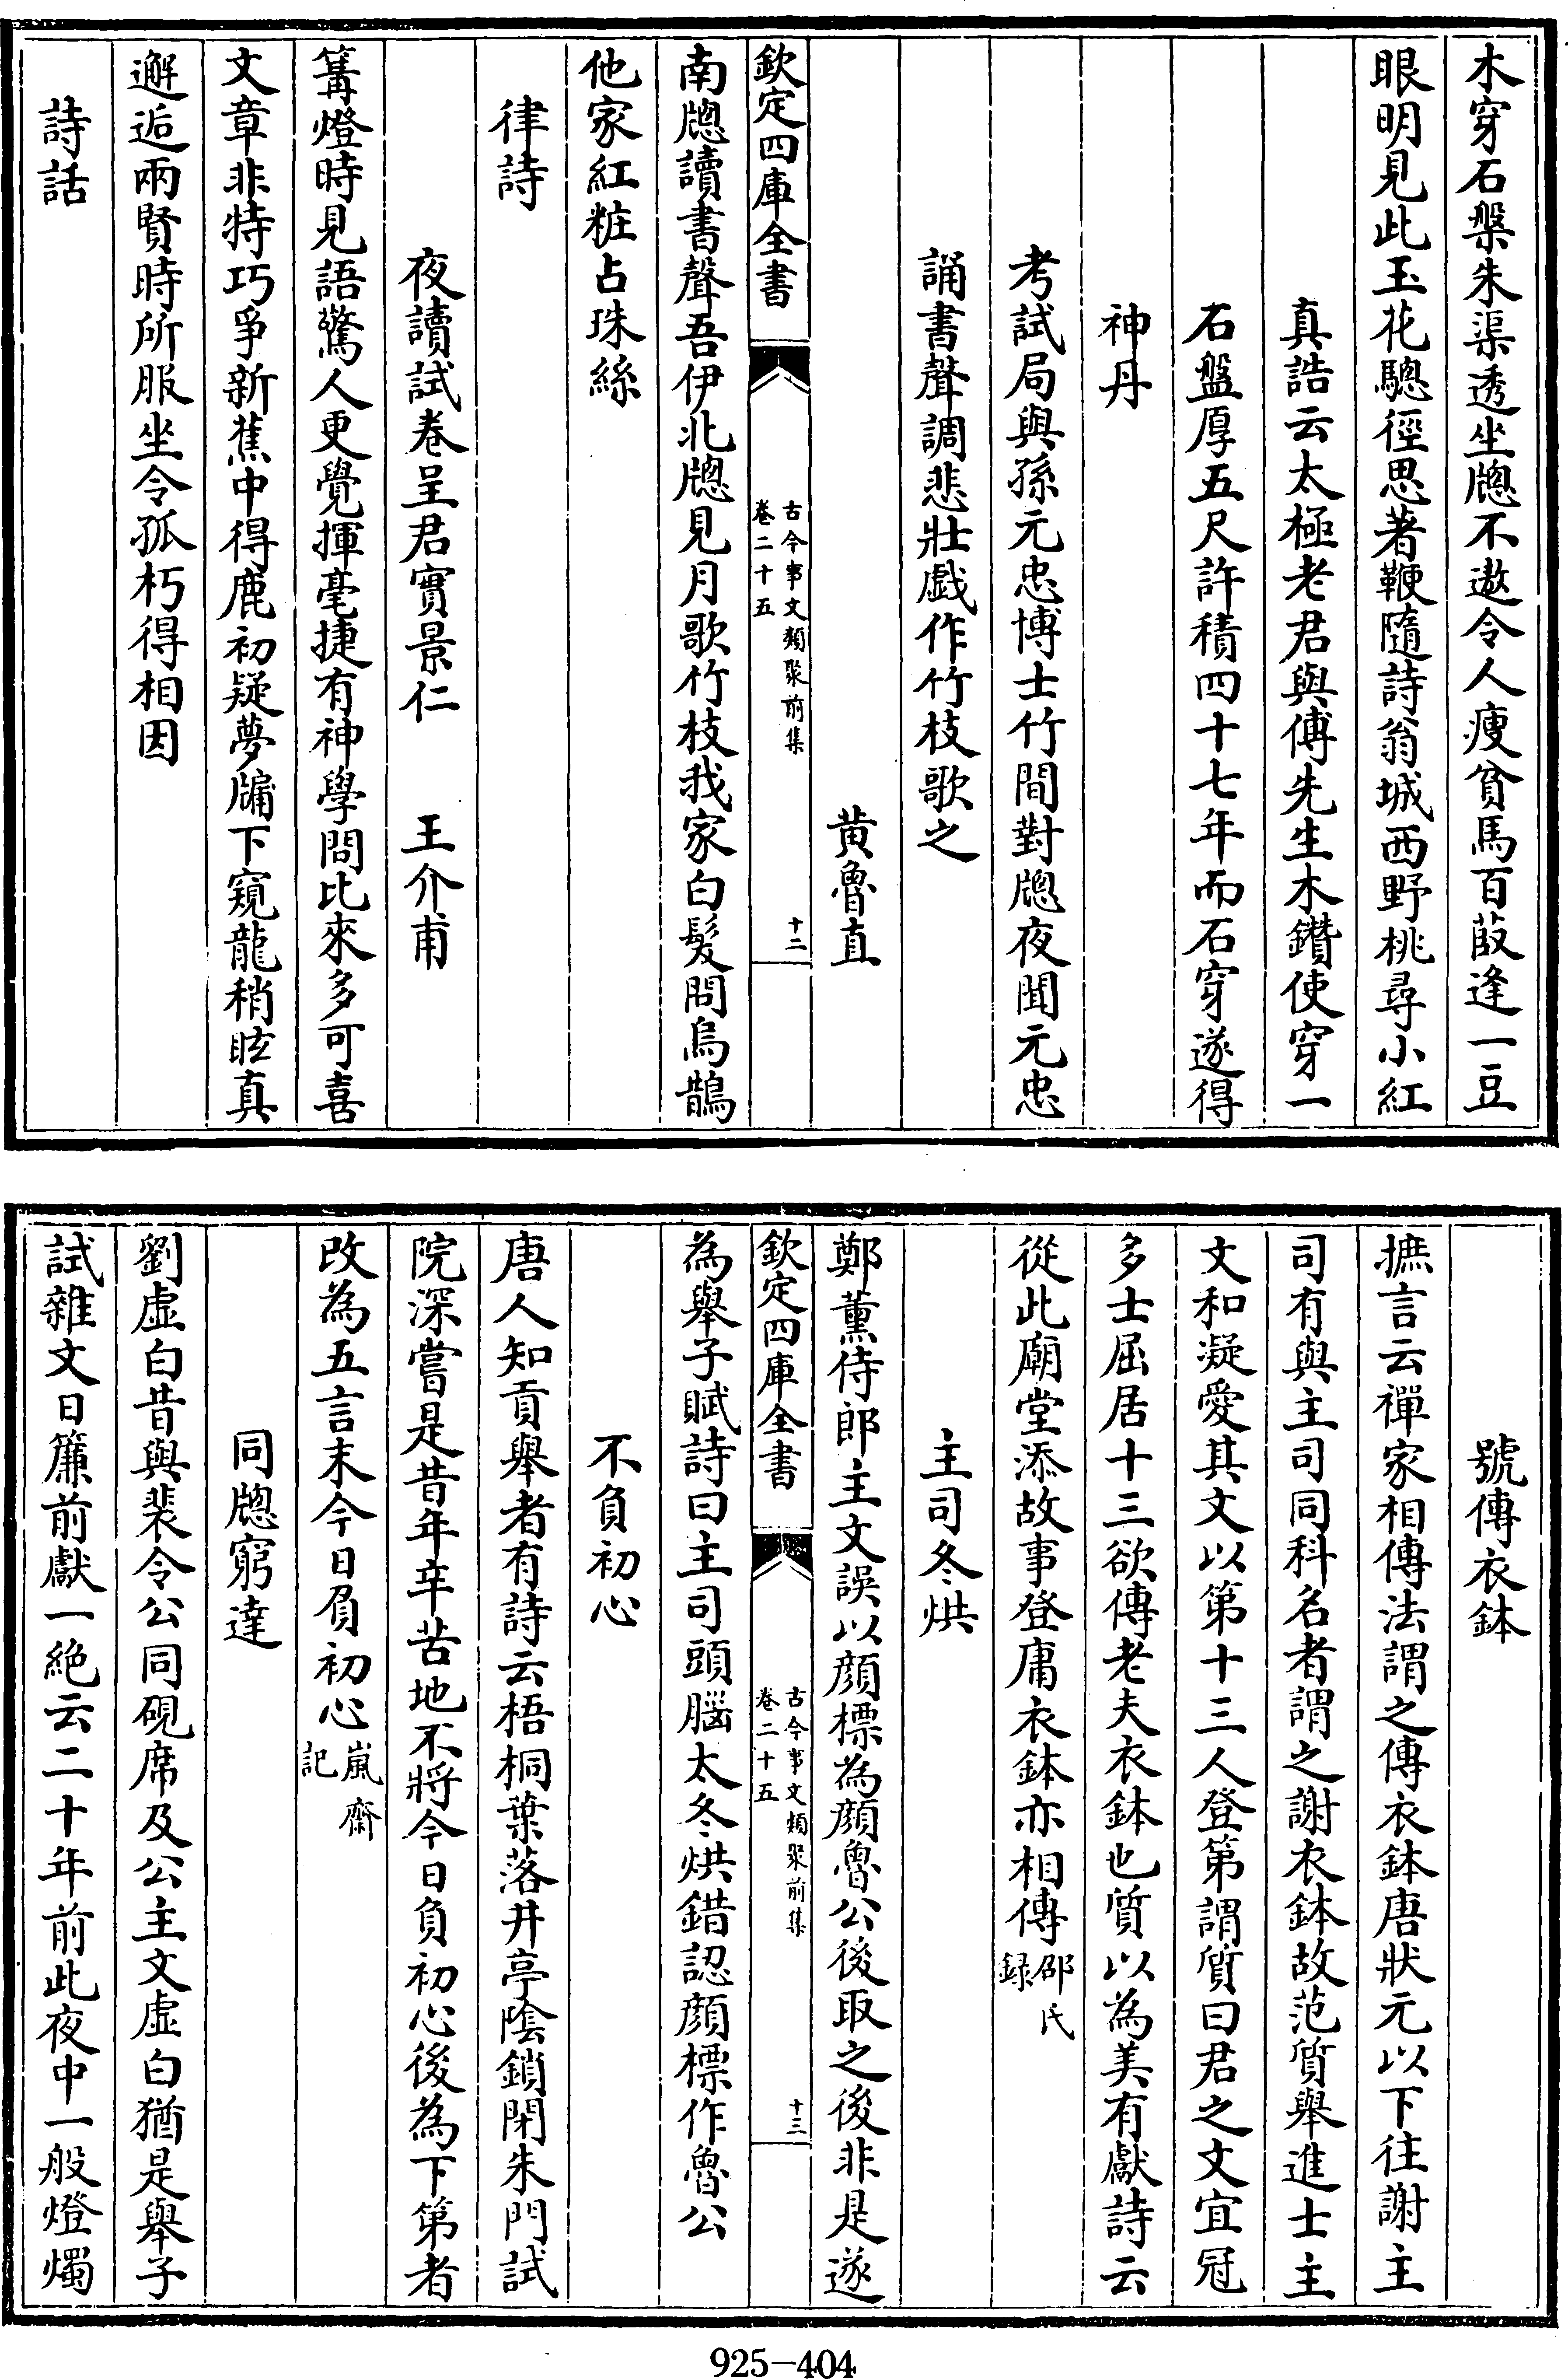 木穿石槃朱渠透坐牕不遨令人瘦貧馬百䕞逢一豆
眼明見此玉花驄徑思著鞭隨詩翁城西野桃尋小紅
真誥云太極老君與傅先生木鑽使穿一
石盤厚五尺許積四十七年而石穿遂得
神丹
考試局與孫元忠博士竹間對牕夜聞元忠
誦書聲調悲壯戯作竹枝歌之
黄魯直
欽定四庫全書
古今事文類聚前集
卷二十五
十二
南牕讀書聲吾伊北牕見月歌竹枝我家白髮問烏鵲
他家紅粧占珠絲
律詩
夜讀試卷呈君實景仁 王介甫
篝燈時見語驚人更覺揮毫捷有神學問比來多可喜
文章非特巧爭新蕉中得鹿初疑夢牖下窺龍稍眩真
邂逅兩賢時所服坐令孤朽得相因
詩話
號傳衣鉢
摭言云禪家相傳法謂之傳衣鉢唐狀元以下往謝主
司有與主司同科名者謂之謝衣鉢故范質舉進士主
文和凝愛其文以第十三人登第謂質曰君之文宜冠
多士屈居十三欲傳老夫衣鉢也質以為美有獻詩云
從此廟堂添故事登庸衣鉢亦相傳邵氏
録
主司冬烘
鄭薰侍郎主文誤以顔標為顔魯公後取之後非是遂
欽定四庫全書
古今事文類聚前集
卷二十五
十三
為舉子賦詩曰主司頭腦太冬烘錯認顔標作魯公
不負初心
唐人知貢舉者有詩云梧桐葉落井亭陰鎖閉朱門試
院深嘗是昔年辛苦地不將今日負初心後為下第者
改為五言末今日負初心嵐齋
記
同牕窮達
劉虛白昔與裴令公同硯席及公主文虛白猶是舉子
試雜文日簾前獻一絶云二十年前此夜中一般燈燭
925-404